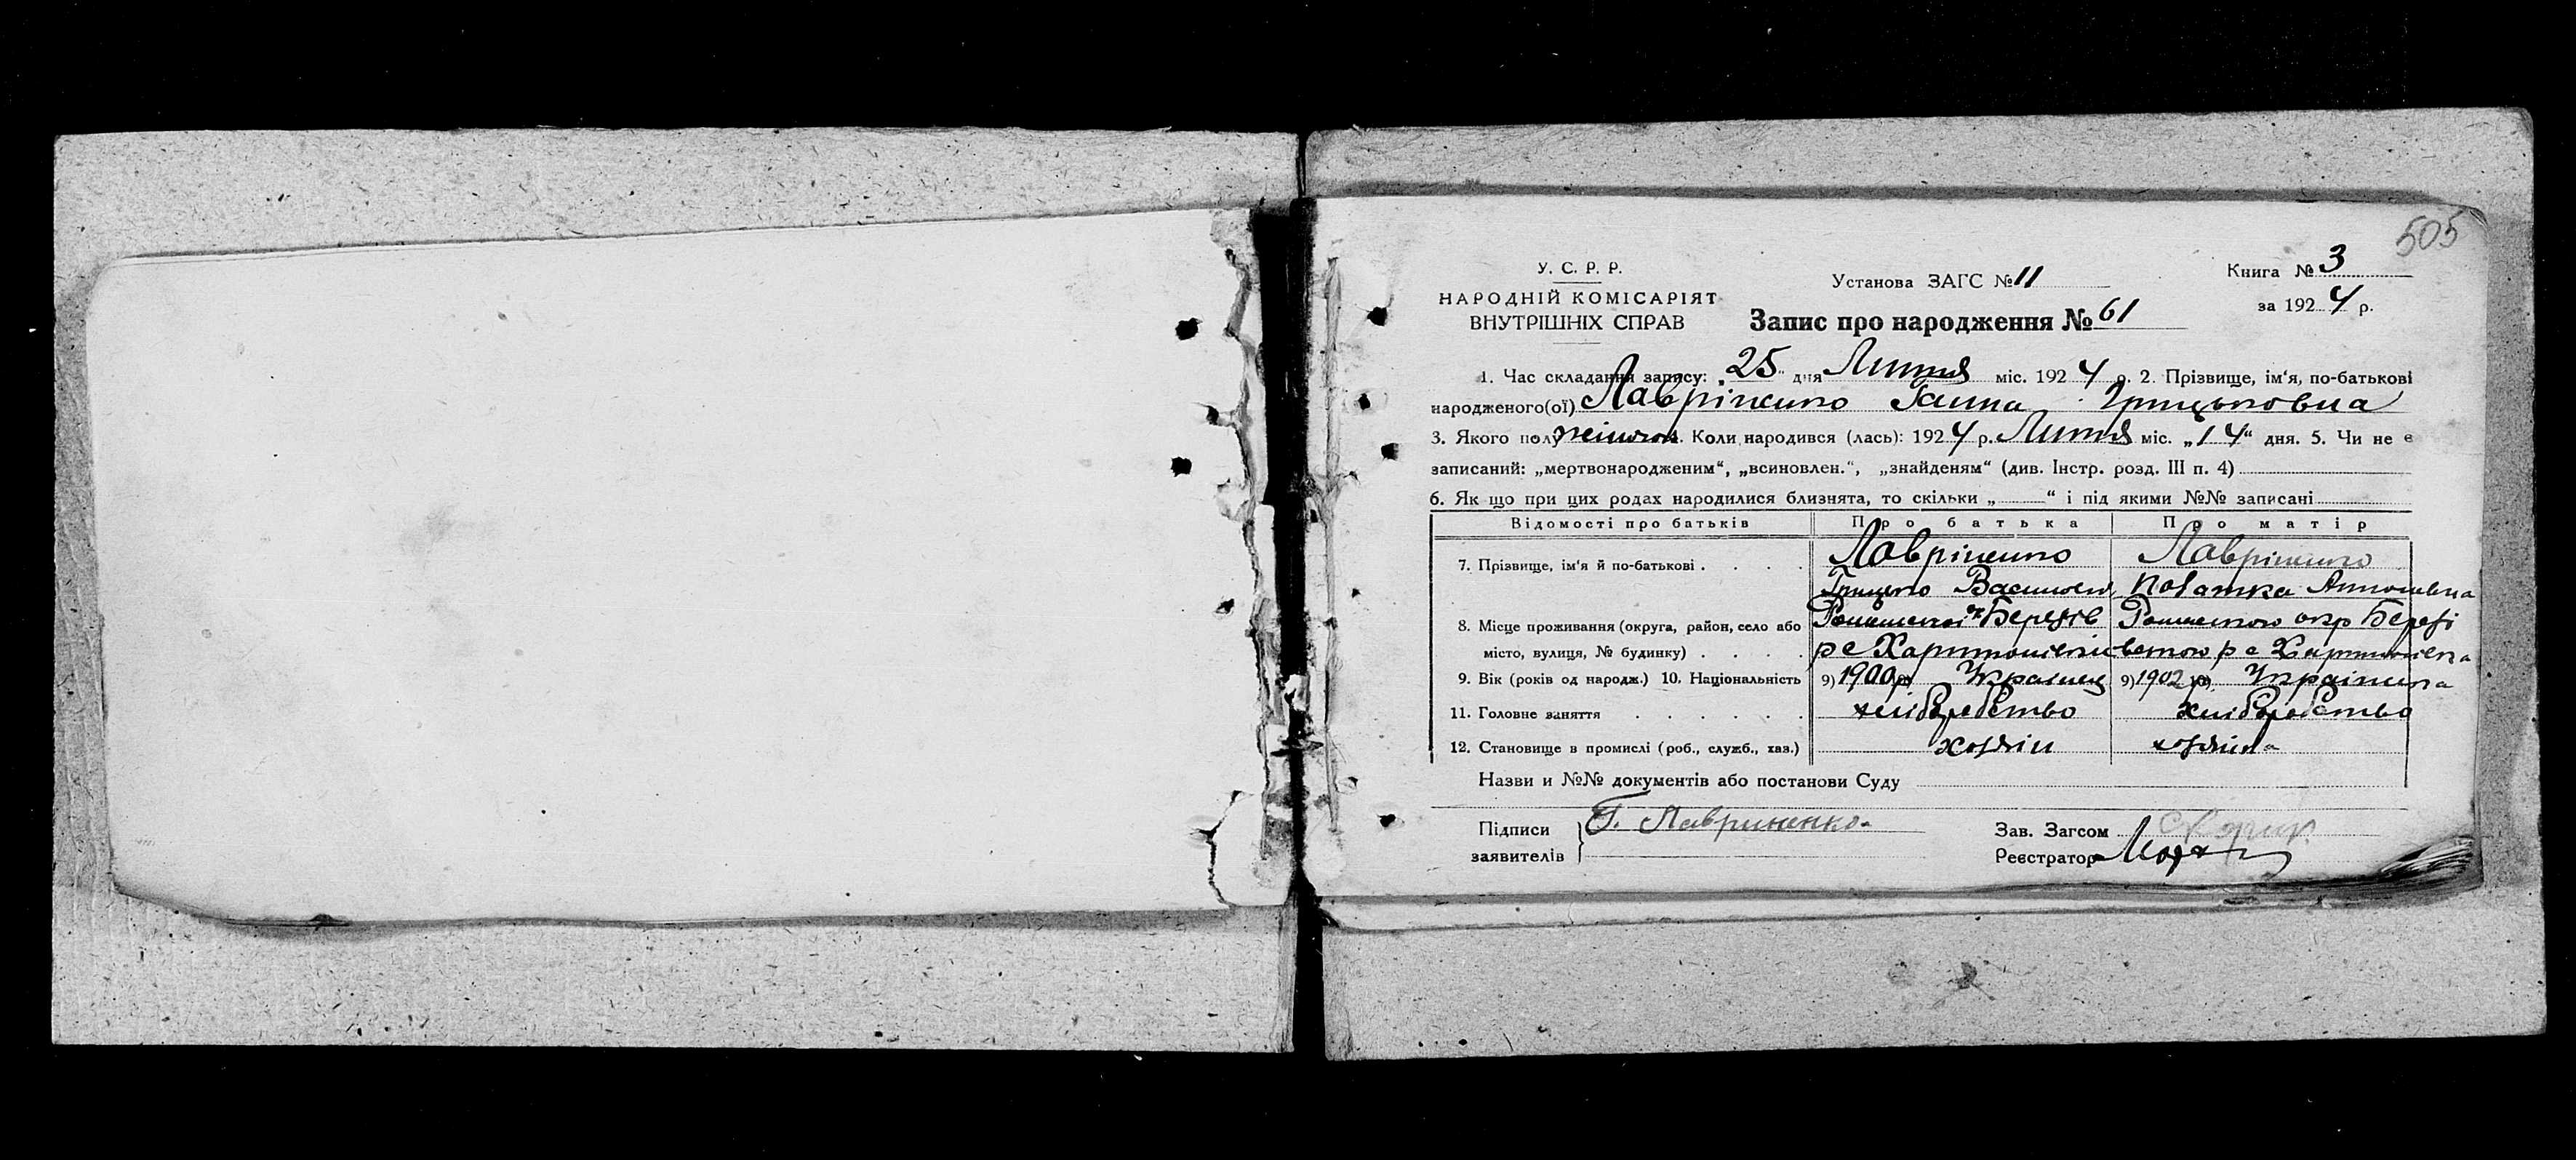 505
У. С. Р. Р.
НАРОДНІЙ КОМІСАРІЯТ
ВНУТРІШНІХ СПРАВ
Установа ЗАГС № 11
Книга № 3
за 1924 р.
Запис про народження № 61
1. Час складання запису: „25" дня Липня міс. 1924 р. 2. Прізвище, ім'я, по-батькові
народженого(ої) Лавріненко Ганна Грицьковна
3. Якого полу жіночой 4. Коли народився (лась): 1924 р. Липня міс. „14" дня. 5. Чи не є
записаний: „мертвонародженим", „всиновлен.", „знайденям" (див. Інстр. розд. III п. 4)
6. Як що при цих родах народилися близнята, то скільки „ " і під якими №№ записані
Відомості про батьків Про батька Про матір
7. Прізвище, ім'я й по-батькові . . . . Лавріненко Лавріненко
Грицько Васильев Антоновна
8. Місце проживання (округа, район, село або Роменської ок Березів Роменського окр Березі
місто, вулиця, № будинку) . . . . р с Хоружовка вського р с
9. Вік (років од народж.) 10. Національність 9) 1900 10) Українец 9) 1902 10) Українка
11. Головне заняття . . . . . . хліборобство хліборобство
12. Становище в промислі (роб., служб., хаз.) хозяін хозяіка
Назви и №№ документів або постанови Суду
Підписи
заявителів
Г. Лавриненко
Зав. Загсом
Реєстратор